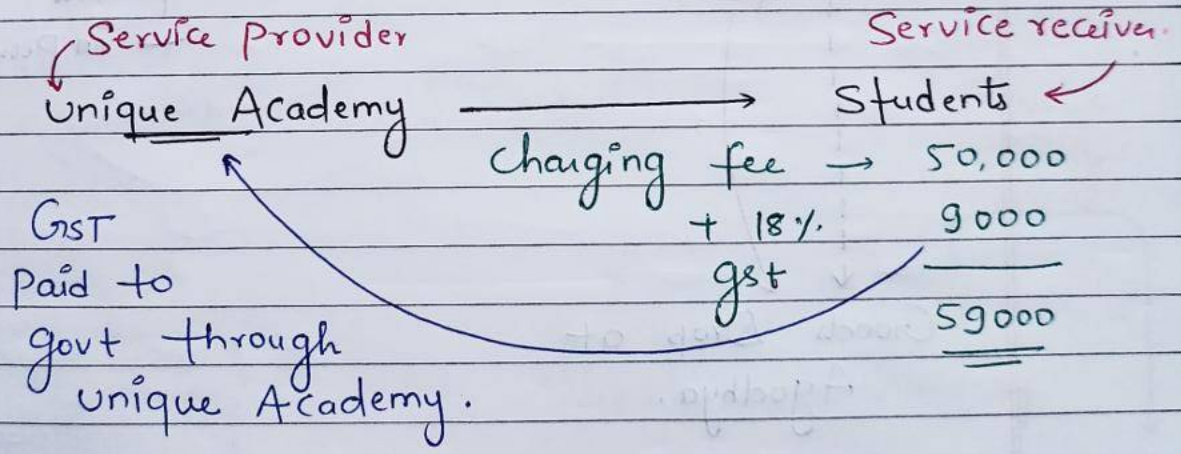 Service Provider
Service receiver.
Unique Academy → Students
Charging fee → 50,000
+ 18% 9000
gst
59000
GST
Paid to
govt through
unique Academy.